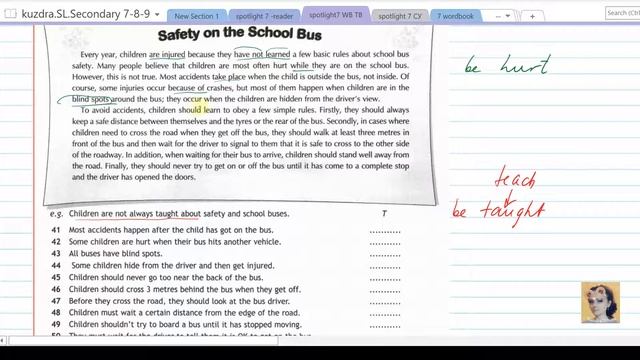 kuzdra.SL.Secondary 7-8-9
New Section 1
spotlight 7 -reader
spotlight7 WB TB
spotlight 7 СУ
7 wordbook
+
Search (Ctrl
Safety on the School Bus
Every year, children are injured because they have not learned a few basic rules about school bus
safety. Many people believe that children are most often hurt while they are on the school bus.
However, this is not true. Most accidents take place when the child is outside the bus, not inside. Of
course, some injuries occur because of crashes, but most of them happen when children are in the
blind spots around the bus; they occur when the children are hidden from the driver's view.
To avoid accidents, children should learn to obey a few simple rules. Firstly, they should always
keep a safe distance between themselves and the tyres or the rear of the bus. Secondly, in cases where
children need to cross the road when they get off the bus, they should walk at least three metres in
front of the bus and then wait for the driver to signal to them that it is safe to cross to the other side
of the roadway. In addition, when waiting for their bus to arrive, children should stand well away from
the road. Finally, they should never try to get on or off the bus until it has come to a complete stop
and the driver has opened the doors.
be hurt
teach
be taught
e.g. Children are not always taught about safety and school buses. T
41 Most accidents happen after the child has got on the bus. ...........
42 Some children are hurt when their bus hits another vehicle. ...........
43 All buses have blind spots. ...........
44 Some children hide from the driver and then get injured. ...........
45 Children should never go too near the back of the bus. ...........
46 Children should cross 3 metres behind the bus when they get off. ...........
47 Before they cross the road, they should look at the bus driver. ...........
48 Children must wait a certain distance from the edge of the road. ...........
49 Children shouldn't try to board a bus until it has stopped moving. ...........
50 They must wait for the driver to tell them it is OK to get on the bus